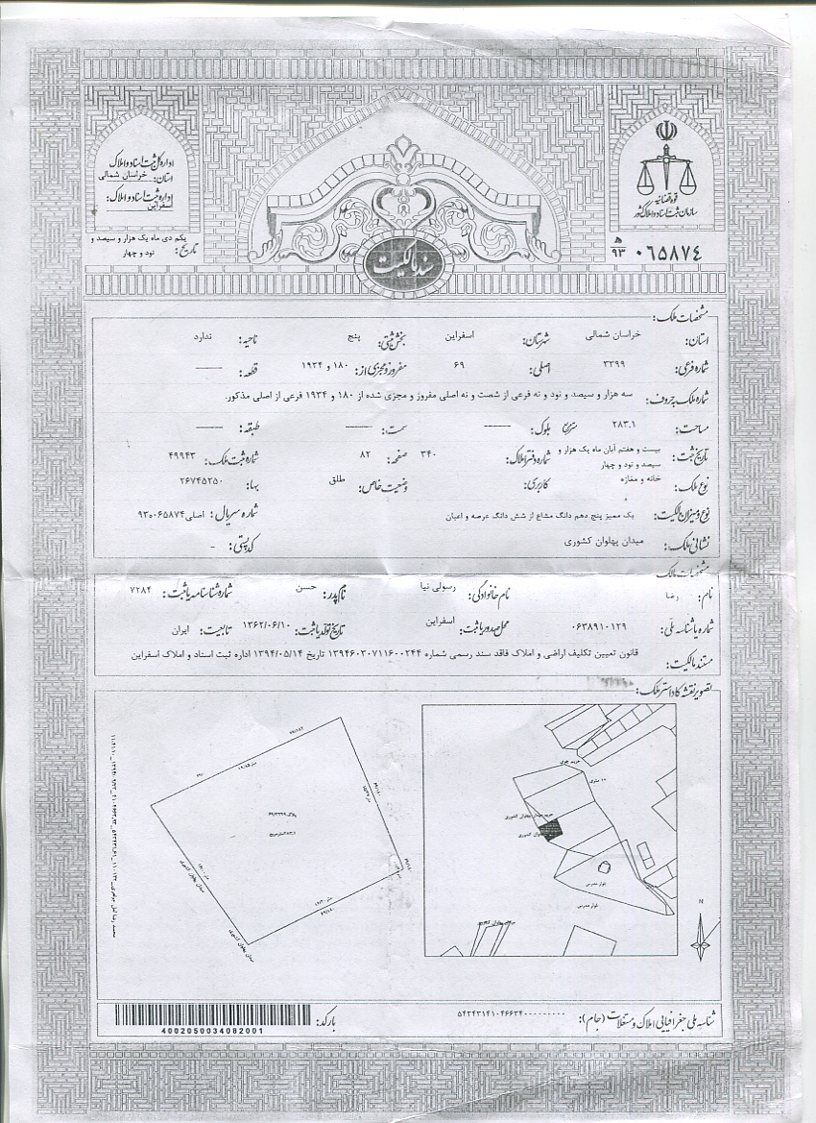 قوه قضائیه
سازمان ثبت اسناد و املاک کشور
ه‍/۹۳ ۰۶۵۸۷۴
سند مالکیت
اداره کل ثبت اسناد و املاک
استان: خراسان شمالی
اداره ثبت اسناد و املاک:
اسفراین
تاریخ: یکم دی ماه یک هزار و سیصد و نود و چهار
مشخصات ملک:
استان: خراسان شمالی شهرستان: اسفراین بخش ثبتی: پنج ناحیه: ندارد
شماره فرعی: ۳۳۹۹ اصلی: ۶۹ مفروز و مجزی از: ۱۸۰ و ۱۹۳۴ قطعه: ——
شماره ملک بحروف: سه هزار و سیصد و نود و نه فرعی از شصت و نه اصلی مفروز و مجزی شده از ۱۸۰ و ۱۹۳۴ فرعی از اصلی مذکور.
مساحت: ۲۸۳.۱ مترمربع بلوک: —— سمت: —— طبقه: ——
تاریخ ثبت: بیست و هفتم آبان ماه یک هزار و سیصد و نود و چهار شماره دفتر املاک: ۳۴۰ صفحه: ۸۲ شماره ثبت ملک: ۴۹۹۴۳
نوع ملک: خانه و مغازه کاربری: وضعیت خاص: طلق بها: ۲۶۷۴۵۲۵۰
نوع و میزان مالکیت: یک ممیز پنج دهم دانگ مشاع از شش دانگ عرصه و اعیان شماره سریال: اصلی ۹۳۰۰۶۵۸۷۴
نشانی ملک: میدان پهلوان کشوری کد پستی: -
مشخصات مالک
نام: رضا نام خانوادگی: رسولی نیا نام پدر: حسن شماره شناسنامه یا ثبت: ۷۲۸۴
شماره یا شناسه ملی: ۰۶۳۸۹۱۰۱۲۹ محل صدور یا ثبت: اسفراین تاریخ تولد یا ثبت: ۱۳۶۲/۰۶/۱۰ تابعیت: ایران
مستند مالکیت: قانون تعیین تکلیف اراضی و املاک فاقد سند رسمی شماره ۱۳۹۴۶۰۳۰۷۱۱۶۰۰۲۴۴ تاریخ ۱۳۹۴/۰۵/۱۴ اداره ثبت اسناد و املاک اسفراین
تصویر نقشه کاداستر ملک:
میدان پهلوان کشوری
میدان پهلوان کشوری
بلوار مدرس
بلوار مدرس
N
شناسه ملی جغرافیایی املاک و مستغلات (جام):
بارکد:
4002050034082001